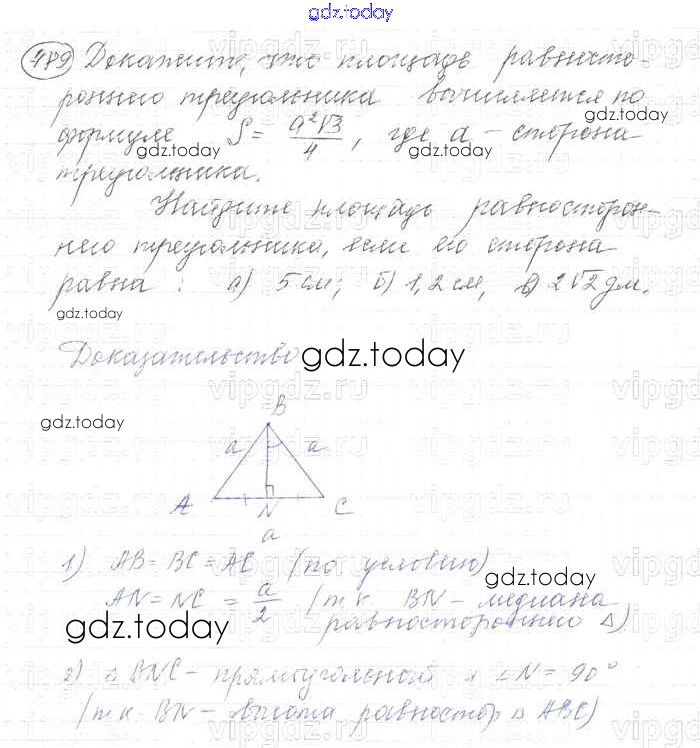 gdz.today
489 Докажите, что площадь равносто-
роннего треугольника вычисляется по
формуле S = a²√3/4, где a - сторона
gdz.today gdz.today
треугольника.
Найдите площадь равносторон-
него треугольника, если его сторона
равна : а) 5 см; б) 1,2 см, в) 2√2 дм.
gdz.today
Доказательство
gdz.today
gdz.today
B
a a
A N C
a
1) AB = BC = AC (по условию)
gdz.today
AN = NC = a/2 /т к BN - медиана
равностороннего Δ)
gdz.today
2) Δ BNC - прямоугольный и ∠N = 90°
/т к BN - высота равностор Δ ABC)